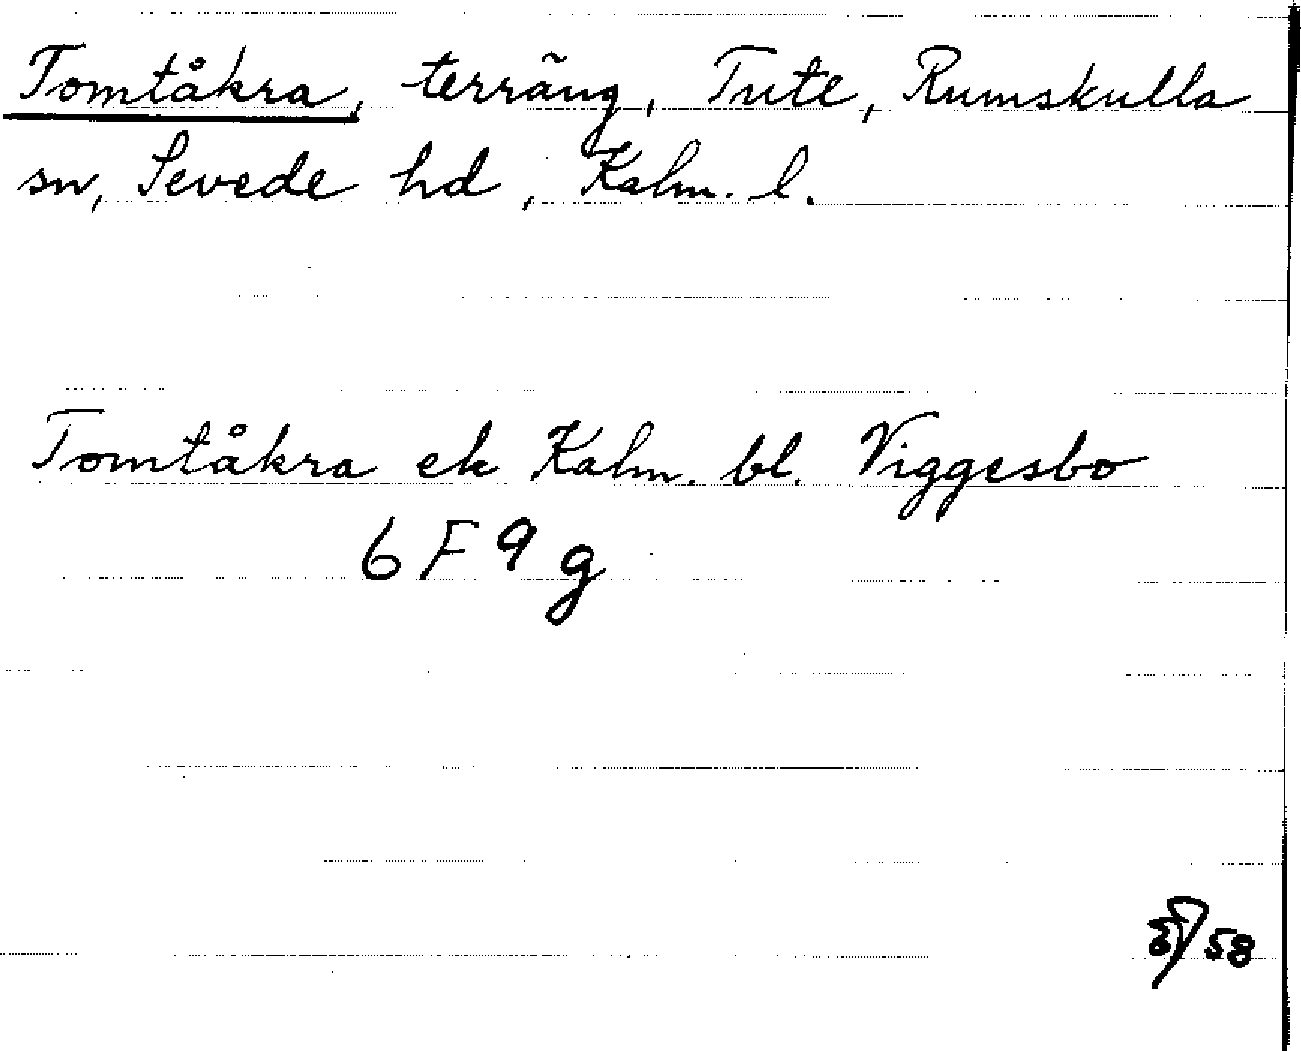 Tomtåkra, terräng, Tute, Rumskulla
sn, Sevede hd, Kalm. l.
Tomtåkra ek Kalm. bl. Viggesbo
6 F 9 g
58